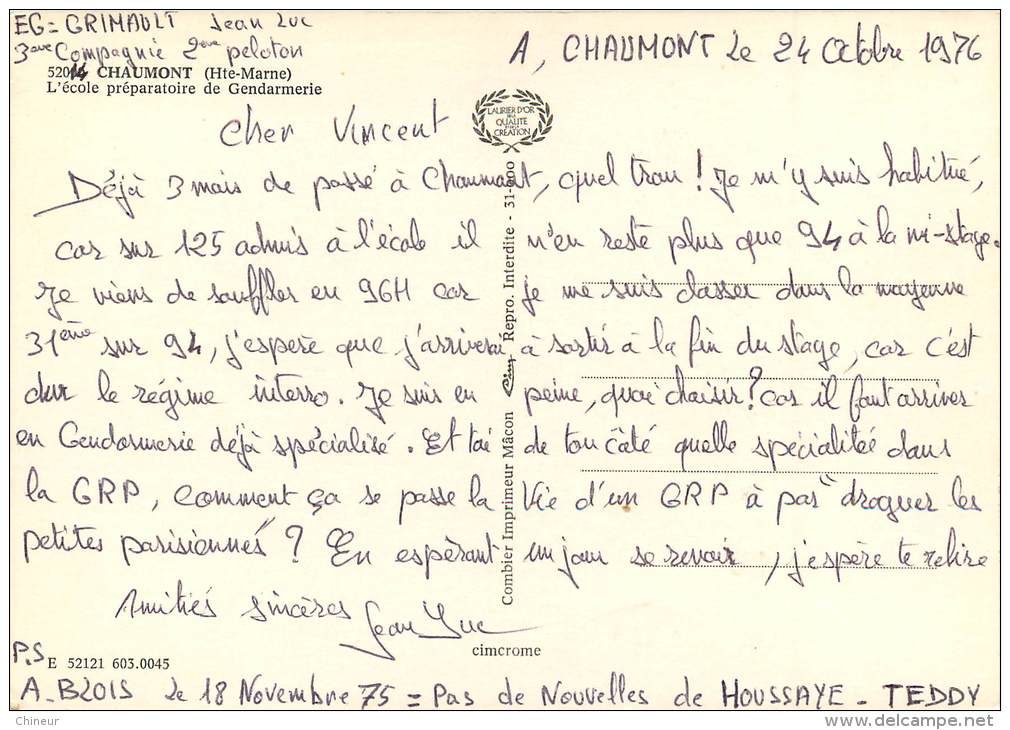 EG= GRIMAULT Jean Luc
3ème Compagnie 2ème peloton
52014 CHAUMONT (Hte-Marne)
L'école préparatoire de Gendarmerie
A, CHAUMONT le 24 Octobre 1976
LAURIER D'OR
DE LA
QUALITÉ
CRÉATION
Cher Vincent
Déjà 3 mois de passé à Chaumont, quel trou! Je m'y suis habitué,
car sur 125 admis à l'école il n'en reste plus que 94 à la mi-stage.
Je viens de souffler en 96H car je me suis classer dans la moyenne
31ème sur 94, j'espère que j'arriverai à sortir à la fin du stage, car c'est
dur le régime interro. Je suis en peine, quoi choisir? car il faut arriver
en Gendarmerie déjà spécialisé. Et toi de ton côté quelle spécialitée dans
la GRP, comment ça se passe la vie d'un GRP à pas "draguer les
petites parisiennes"? En espèrant un jour se revoir, j'espère te relire
Amitiés sincères Jean Luc
Combier Imprimeur Mâcon Cim Repro. Interdite - 31-000
cimcrome
P.S
E 52121 603.0045
A-BLOIS le 18 Novembre 75 = Pas de Nouvelles de HOUSSAYE - TEDDY
Chineur
© delcampe.net